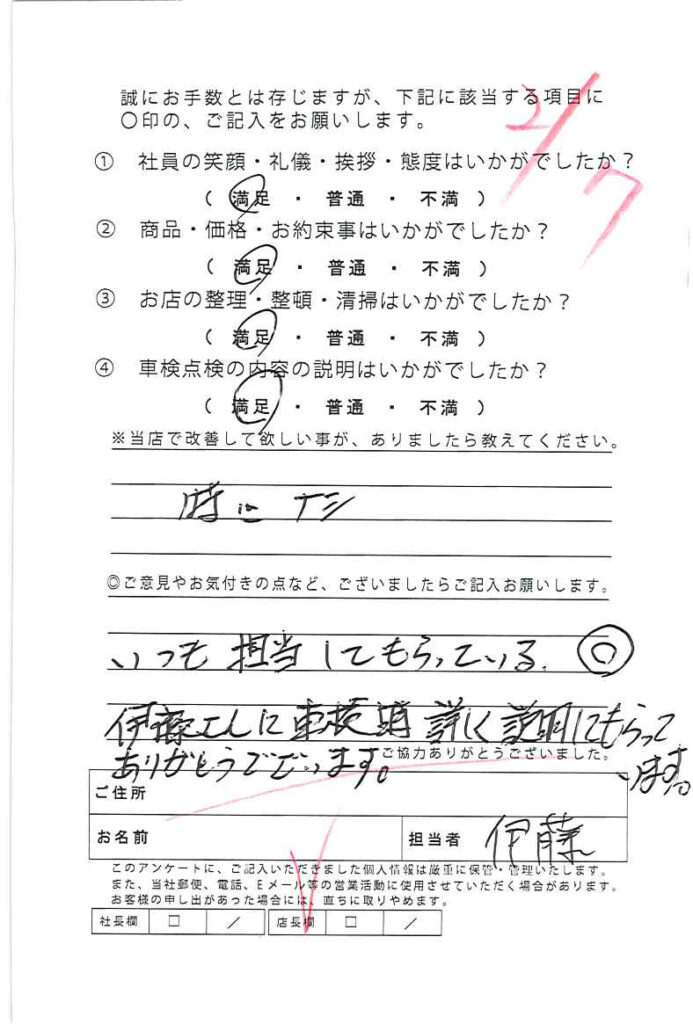 誠にお手数とは存じますが、下記に該当する項目に
〇印の、ご記入をお願いします。
2/7
① 社員の笑顔・礼儀・挨拶・態度はいかがでしたか？
( 満足 ・ 普通 ・ 不満 )
② 商品・価格・お約束事はいかがでしたか？
( 満足 ・ 普通 ・ 不満 )
③ お店の整理・整頓・清掃はいかがでしたか？
( 満足 ・ 普通 ・ 不満 )
④ 車検点検の内容の説明はいかがでしたか？
( 満足 ・ 普通 ・ 不満 )
※当店で改善して欲しい事が、ありましたら教えてください。
時にナシ
◎ご意見やお気付きの点など、ございましたらご記入お願いします。
いつも担当してもらっている。◎
伊藤さんに車検時詳しく説明してもらって
います。
ありがとうございます。
ご協力ありがとうございました。
ご住所
お名前
担当者 伊藤
このアンケートに、ご記入いただきました個人情報は厳重に保管・管理いたします。
また、当社郵便、電話、Eメール等の営業活動に使用させていただく場合があります。
お客様の申し出があった場合には、直ちに取りやめます。
社長欄 □ / 店長欄 □ /